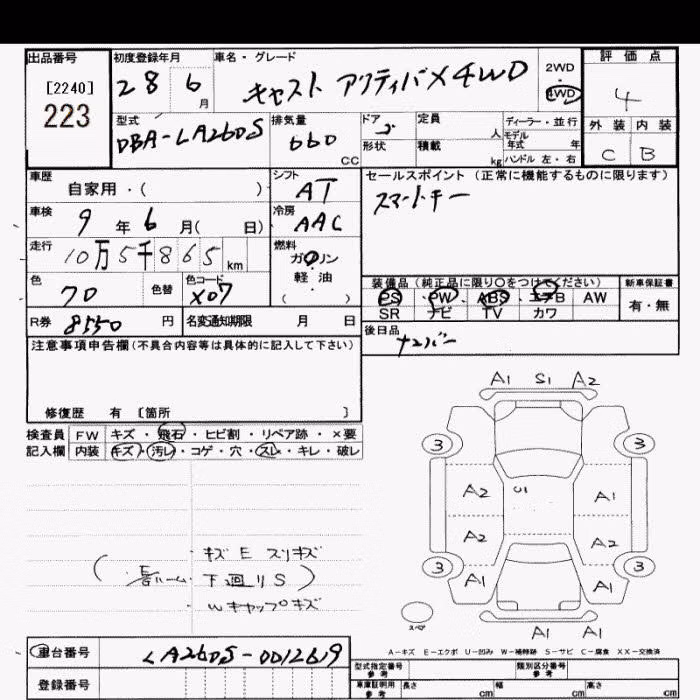 出品番号 初度登録年月 車名・グレード 2WD 評価点
[2240] 28 6月 キャスト アクティバX4WD ・ 4
223 4WD
型式 排気量 ドア 定員 ディーラー・並行 外装 内装
DBA-LA260S 660 5 人 モデル年式 年
CC 形状 積載 kg ハンドル 左・右 C B
車歴 シフト セールスポイント (正常に機能するものに限ります)
自家用・( ) AT スマートキー
車検 冷房
9年6月( 日) AAC
走行 燃料
10万5千865km ガソリン
色 色替 色コード ・軽油
70 X07 ( )
装備品 (純正品に限り○をつけてください) 新車保証書
PS PW ABS エアB AW 有・無
SR ナビ TV カワ
R券 8550円 名変通知期限 月 日
後日品 ナンバー
注意事項申告欄(不具合内容等は具体的に記入して下さい)
修復歴 有 〔箇所 〕
検査員 FW キズ・飛石・ヒビ割・リペア跡・×要
記入欄 内装 キズ・汚レ・コゲ・穴・スレ・キレ・破レ
A1 S1 A2
3 3
A2 U1 A1
A2 A2
3 3
A1 A1
スペア
A1 A1
・キズ E スリキズ
下廻りS
・Wキャップキズ
A-キズ E-エクボ U-凹み W-補修跡 S-サビ C-腐食 XX-交換済
車台番号 LA260S-0012619
登録番号
型式指定番号 参考 類別区分番号 参考
車庫証明用 参考 長さ cm 幅 cm 高さ cm